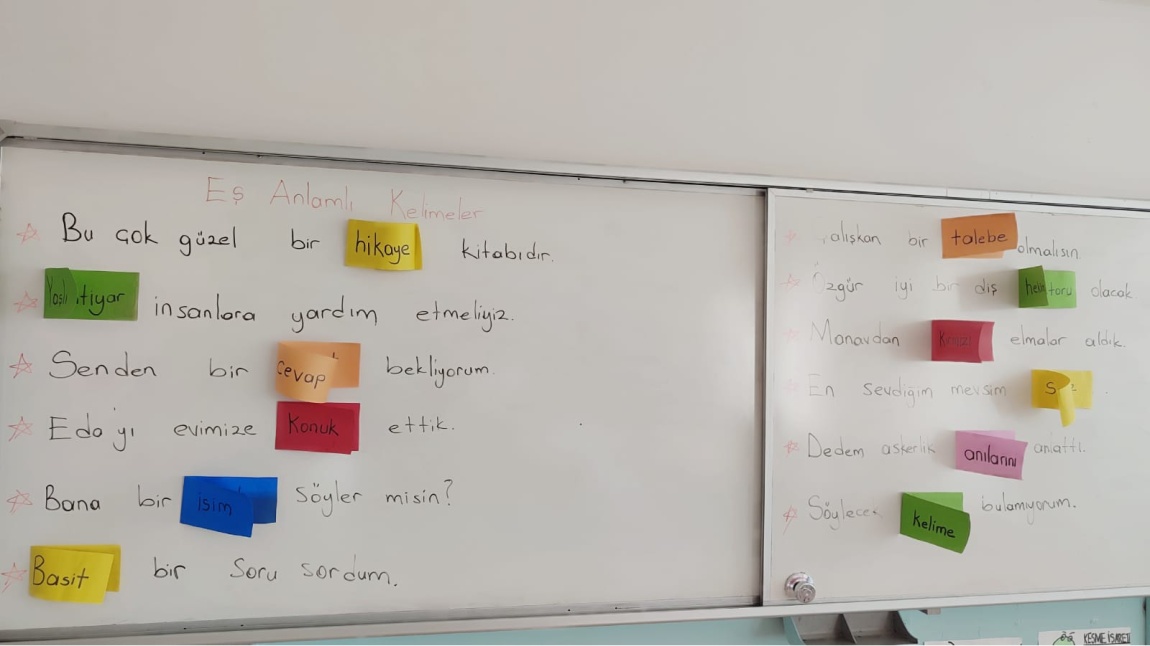 Eş Anlamlı Kelimeler
Bu çok güzel bir hikaye kitabıdır.
Yaşlı insanlara yardım etmeliyiz.
Senden bir cevap bekliyorum.
Eda'yı evimize Konuk ettik.
Bana bir isim söyler misin?
Basit bir soru sordum.
alışkan bir talebe olmalısın.
zgür iyi bir diş olacak
Manavdan elmalar aldık.
En sevdiğim mevsim
Dedem askerlik anılarını anlattı.
Söylecek kelime bulamıyorum.
KESME İŞARETİ